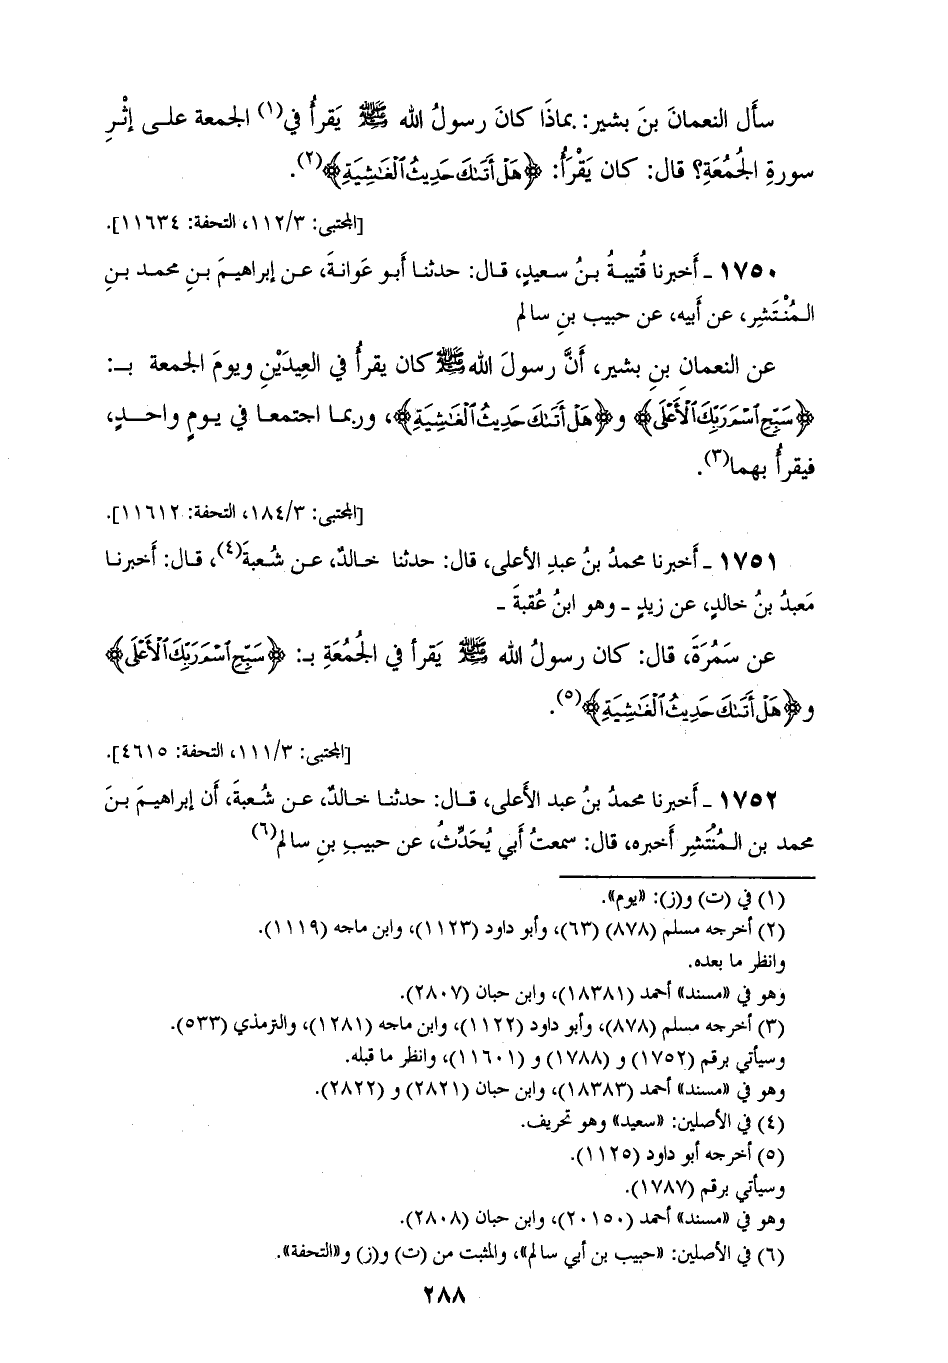 سأَل النعمانَ بنَ بشير: بماذَا كانَ رسولُ الله ﷺ يَقرأُ في(١) الجمعة على إثْرِ
سورةِ الجُمُعَةِ؟ قال: كان يَقْرَأُ: ﴿هَلْ أَتَىٰكَ حَدِيثُ ٱلْغَٰشِيَةِ﴾(٢).
[المجتبى: ١١٢/٣، التحفة: ١١٦٣٤].
١٧٥٠ ـ أَخبرنا قُتيبةُ بنُ سعيدٍ، قال: حدثنا أَبو عَوانةَ، عن إبراهيمَ بنِ محمد بنِ
المُنْتَشِر، عن أَبيه، عن حبيب بنِ سالم
عن النعمانِ بنِ بشير، أَنَّ رسولَ الله ﷺ كان يقرأُ في العِيدَيْنِ ويومَ الجمعة بـ:
﴿سَبِّحِ ٱسْمَ رَبِّكَ ٱلْأَعْلَى﴾ و﴿هَلْ أَتَىٰكَ حَدِيثُ ٱلْغَٰشِيَةِ﴾، وربما اجتمعا في يومٍ واحدٍ،
فيقرأُ بهما(٣).
[المجتبى: ١٨٤/٣، التحفة: ١١٦١٢].
١٧٥١ ـ أَخبرنا محمدُ بنُ عبدِ الأعلى، قال: حدثنا خالدٌ، عن شُعبةَ(٤)، قال: أَخبرنا
مَعبدُ بنُ خالدٍ، عن زيدٍ ـ وهو ابنُ عُقبةَ ـ
عن سَمُرَةَ، قال: كان رسولُ الله ﷺ يَقرأ في الجُمُعَةِ بـ: ﴿سَبِّحِ ٱسْمَ رَبِّكَ ٱلْأَعْلَى﴾
و﴿هَلْ أَتَىٰكَ حَدِيثُ ٱلْغَٰشِيَةِ﴾(٥).
[المجتبى: ١١١/٣، التحفة: ٤٦١٥].
١٧٥٢ ـ أَخبرنا محمدُ بنُ عبد الأَعلى، قال: حدثنا خالدٌ، عن شُعبةَ، أَن إبراهيمَ بنَ
محمد بن المُنْتَشِر أَخبره، قال: سمعتُ أَبي يُحَدِّثُ، عن حبيبِ بنِ سالم(٦)
(١) في (ت) و(ز): «يوم».
(٢) أخرجه مسلم (٨٧٨) (٦٣)، وأبو داود (١١٢٣)، وابن ماجه (١١١٩).
وانظر ما بعده.
وهو في «مسند» أحمد (١٨٣٨١)، وابن حبان (٢٨٠٧).
(٣) أخرجه مسلم (٨٧٨)، وأبو داود (١١٢٢)، وابن ماجه (١٢٨١)، والترمذي (٥٣٣).
وسيأتي برقم (١٧٥٢) و (١٧٨٨) و (١١٦٠١)، وانظر ما قبله.
وهو في «مسند» أحمد (١٨٣٨٣)، وابن حبان (٢٨٢١) و (٢٨٢٢).
(٤) في الأصلين: «سعيد» وهو تحريف.
(٥) أخرجه أبو داود (١١٢٥).
وسيأتي برقم (١٧٨٧).
وهو في «مسند» أحمد (٢٠١٥٠)، وابن حبان (٢٨٠٨).
(٦) في الأصلين: «حبيب بن أبي سالم»، والمثبت من (ت) و(ز) و«التحفة».
٢٨٨